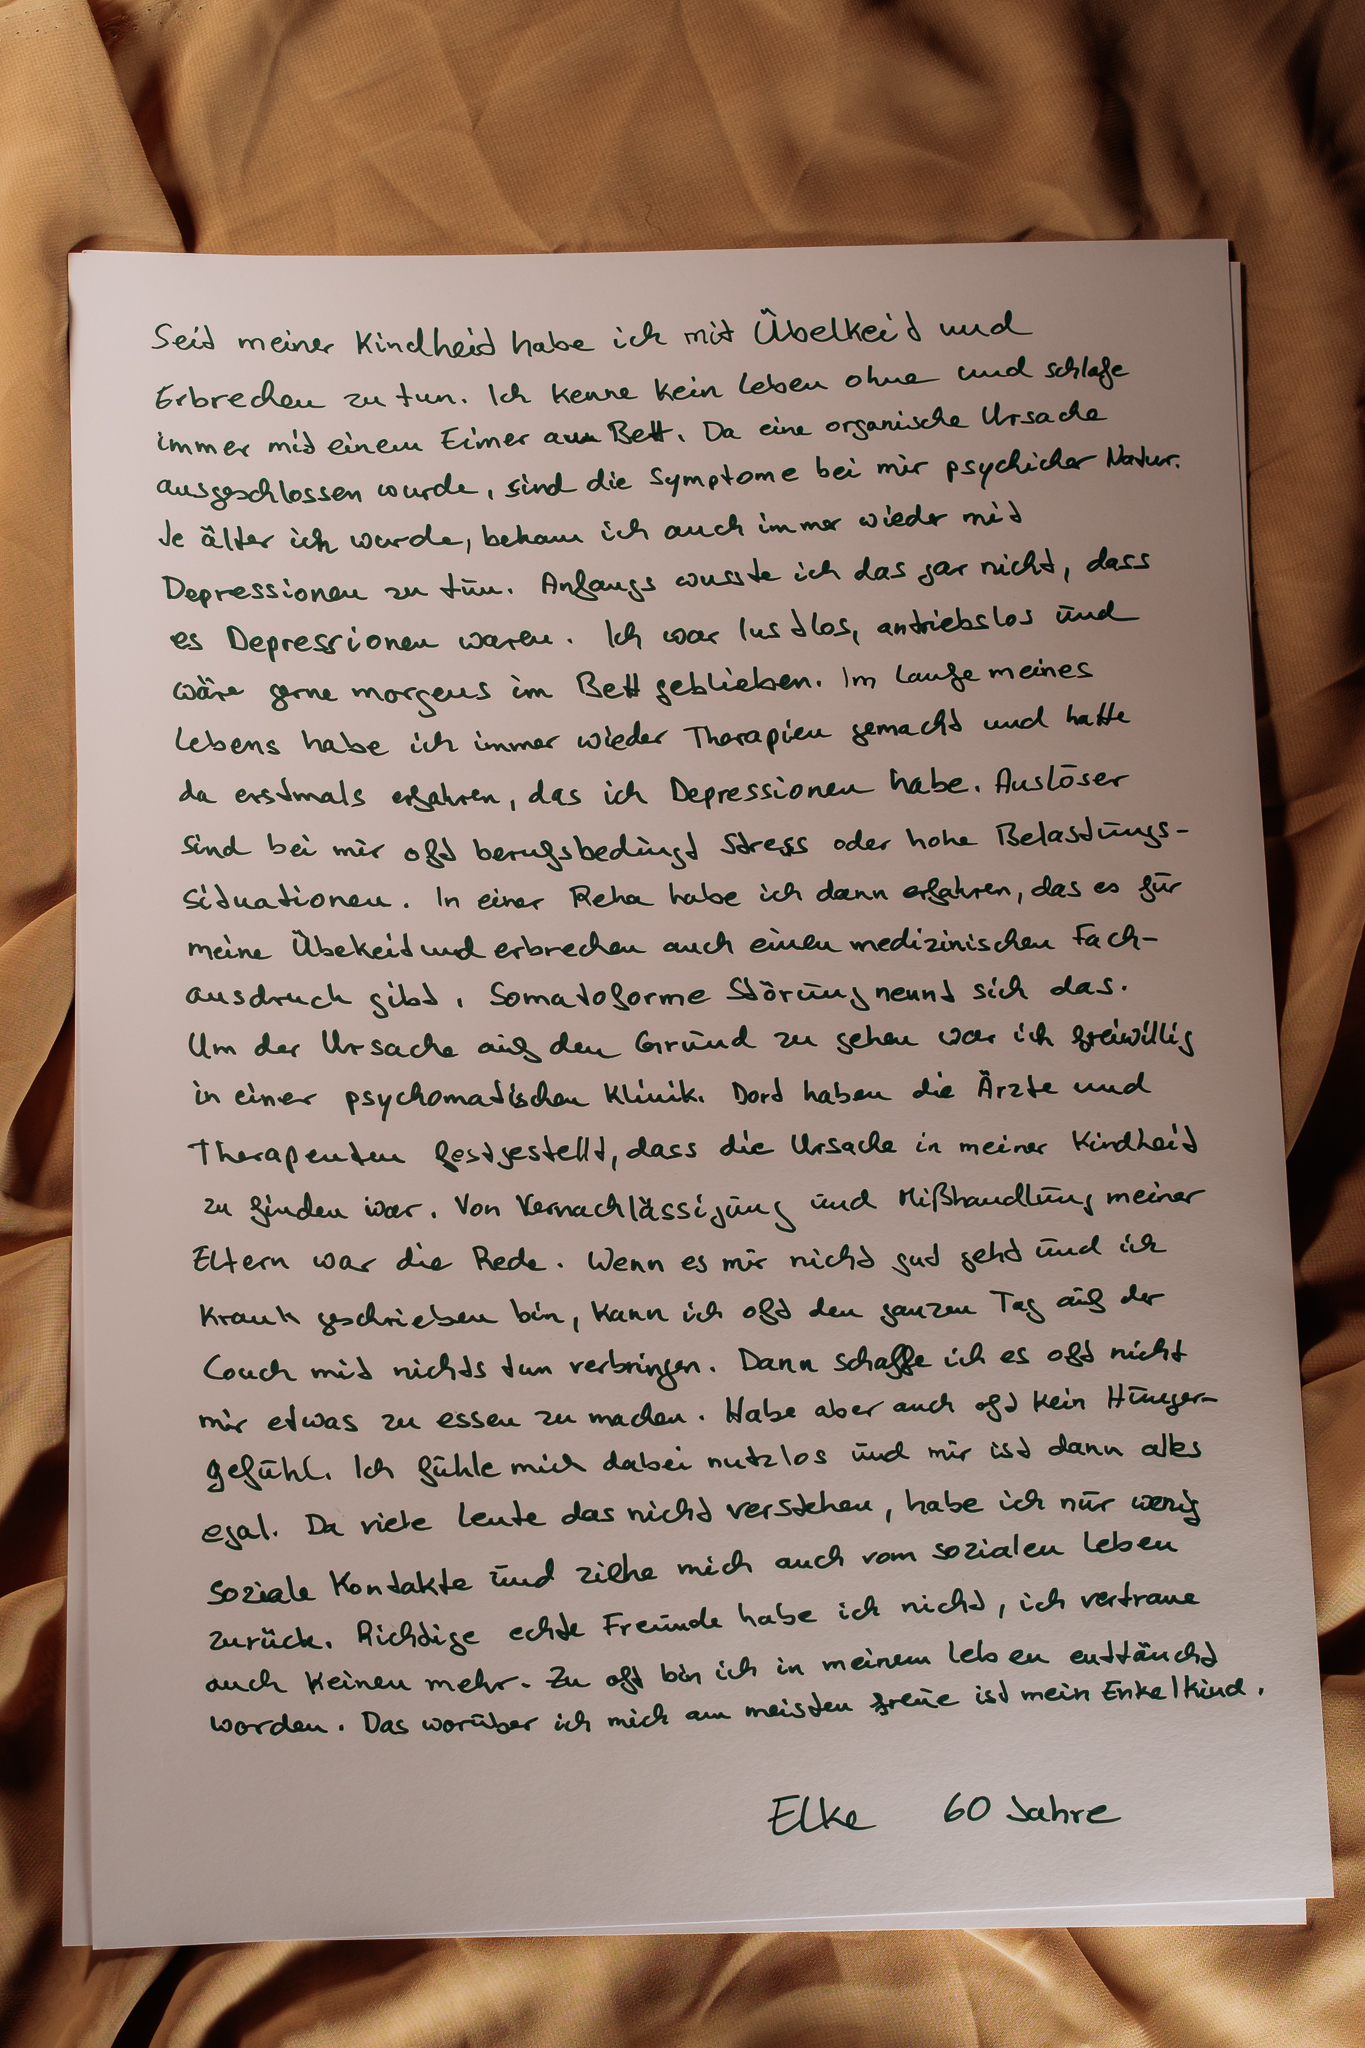 Seit meiner Kindheit habe ich mit Übelkeit und
Erbrechen zu tun. Ich kenne kein Leben ohne und schlafe
immer mit einem Eimer am Bett. Da eine organische Ursache
ausgeschlossen wurde, sind die Symptome bei mir psychicher Natur.
Je älter ich wurde, bekam ich auch immer wieder mit
Depressionen zu tun. Anfangs wusste ich das gar nicht, dass
es Depressionen waren. Ich war lustlos, antriebslos und
wäre gerne morgens im Bett geblieben. Im Laufe meines
Lebens habe ich immer wieder Therapien gemacht und hatte
da erstmals erfahren, das ich Depressionen habe. Auslöser
sind bei mir oft berufsbedingt Stress oder hohe Belastungs-
situationen. In einer Reha habe ich dann erfahren, das es für
meine Übekeit und erbrechen auch einen medizinischen Fach-
ausdruck gibt. Somatoforme Störung nennt sich das.
Um der Ursache auf den Grund zu gehen war ich freiwillig
in einer psychomatischen Klinik. Dort haben die Ärzte und
Therapeuten festgestellt, dass die Ursache in meiner Kindheit
zu finden war. Von Vernachlässigung und Mißhandlung meiner
Eltern war die Rede. Wenn es mir nicht gut geht und ich
krank geschrieben bin, kann ich oft den ganzen Tag auf der
Couch mit nichts tun verbringen. Dann schaffe ich es oft nicht
mir etwas zu essen zu machen. Habe aber auch oft kein Hunger-
gefühl. Ich fühle mich dabei nutzlos und mir ist dann alles
egal. Da viele Leute das nicht verstehen, habe ich nur wenig
soziale Kontakte und ziehe mich auch vom sozialen Leben
zurück. Richtige echte Freunde habe ich nicht, ich vertraue
auch keinen mehr. Zu oft bin ich in meinem Leben enttäucht
worden. Das worüber ich mich am meisten freue ist mein Enkelkind.
Elke 60 Jahre